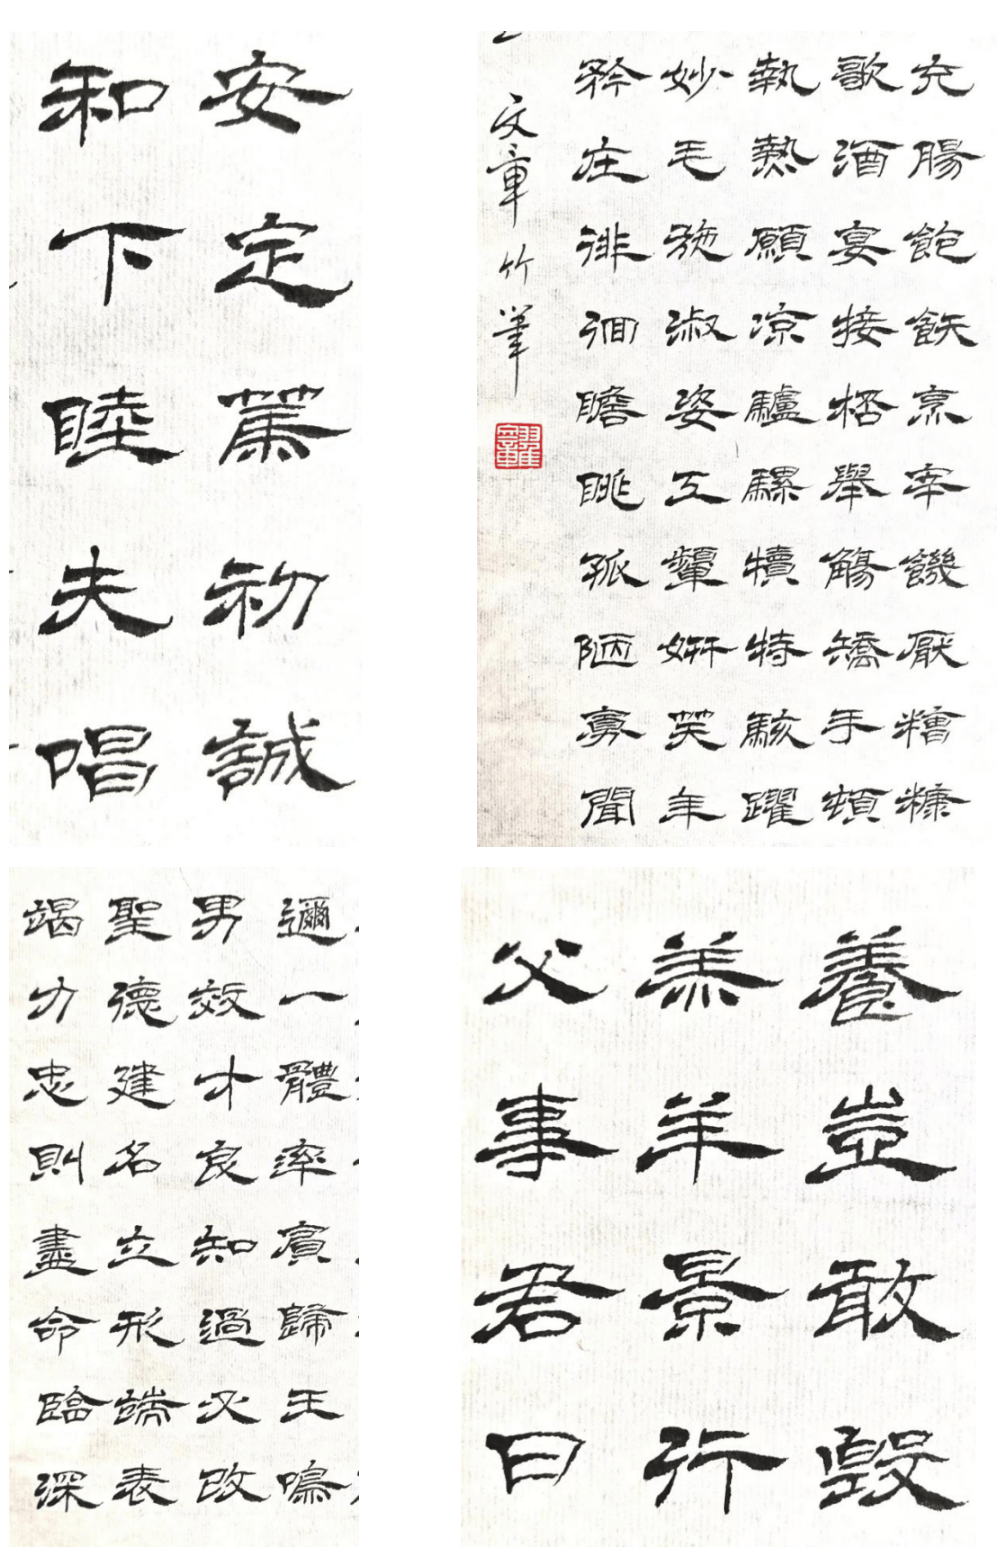 安定篤初誠
和下睦夫唱
充腸飽飫烹宰饑厭糟糠
歌酒宴接桮舉觴矯手頓
執熱願凉驢騾犢特駭躍
妙毛施淑姿工顰妍笑年
矜庄徘徊瞻眺孤陋寡聞
文章竹筆
邇一體率賓歸王鳴
男效才良知過必改
聖德建名立形端表
竭力忠則盡命臨深
養豈敢毀
羔羊景行
父事君曰